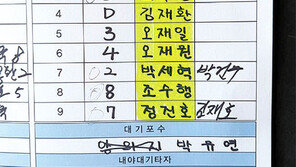 4 D 김재환
5 3 오재일
6 4 오재원
7 2 박세혁 박건우
8 8 조수행
9 7 정진호 김재호
대기포수
양의지 박유연
내야대기타자